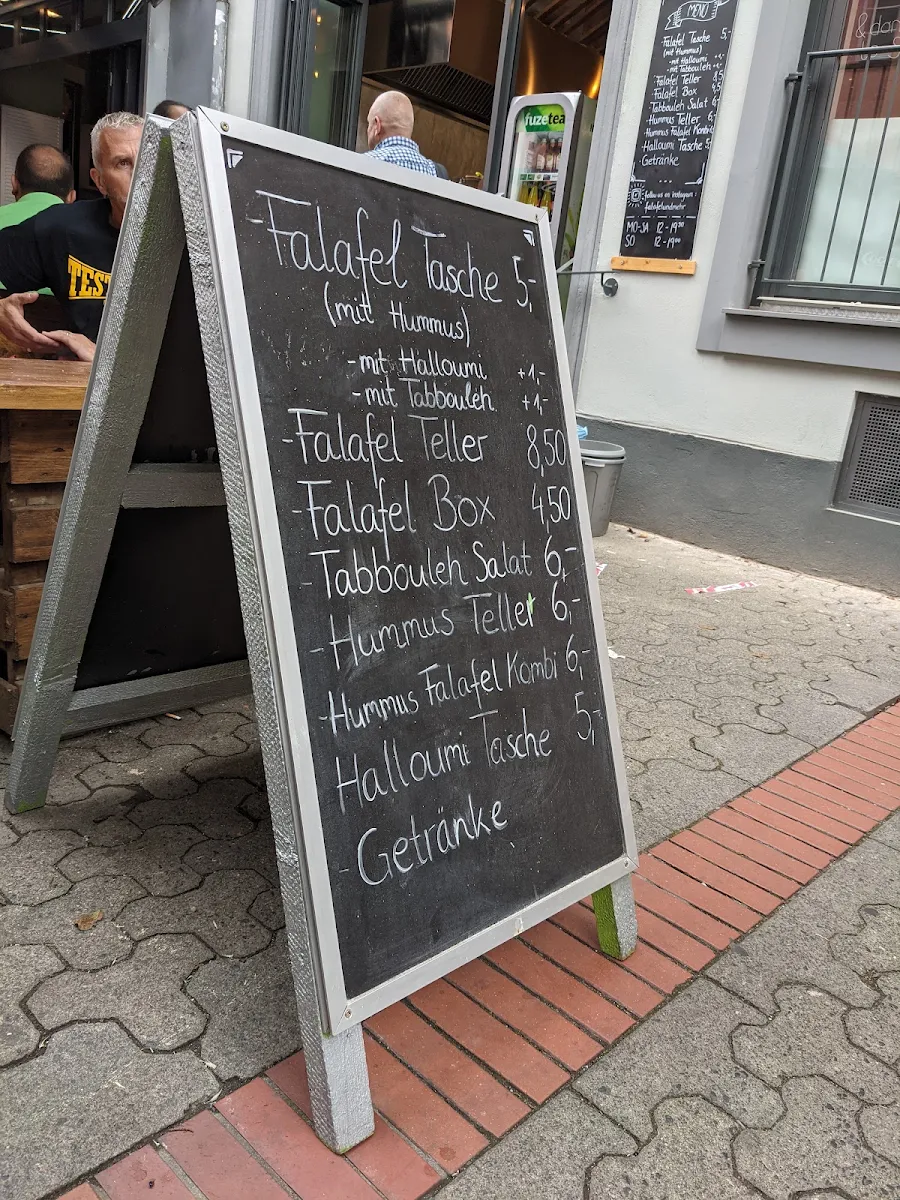 - Falafel Tasche 5,-
(mit Hummus)
- mit Halloumi +1,-
- mit Tabbouleh +1,-
- Falafel Teller 8,50
- Falafel Box 4,50
- Tabbouleh Salat 6,-
- Hummus Teller 6,-
- Hummus Falafel Kombi 6,-
Halloumi Tasche 5,-
- Getränke
TEST
fuzetea
MENÜ
- Falafel Tasche 5,-
(mit Hummus)
- mit Halloumi
- mit Tabbouleh
Falafel Teller
Falafel Box
Tabbouleh Salat 6
Hummus Teller 6
Hummus Falafel Kombi
Halloumi Tasche 5
Getränke
follow us on instagram:
falafelundmehr
MO-SA 12-19
SO 12-19